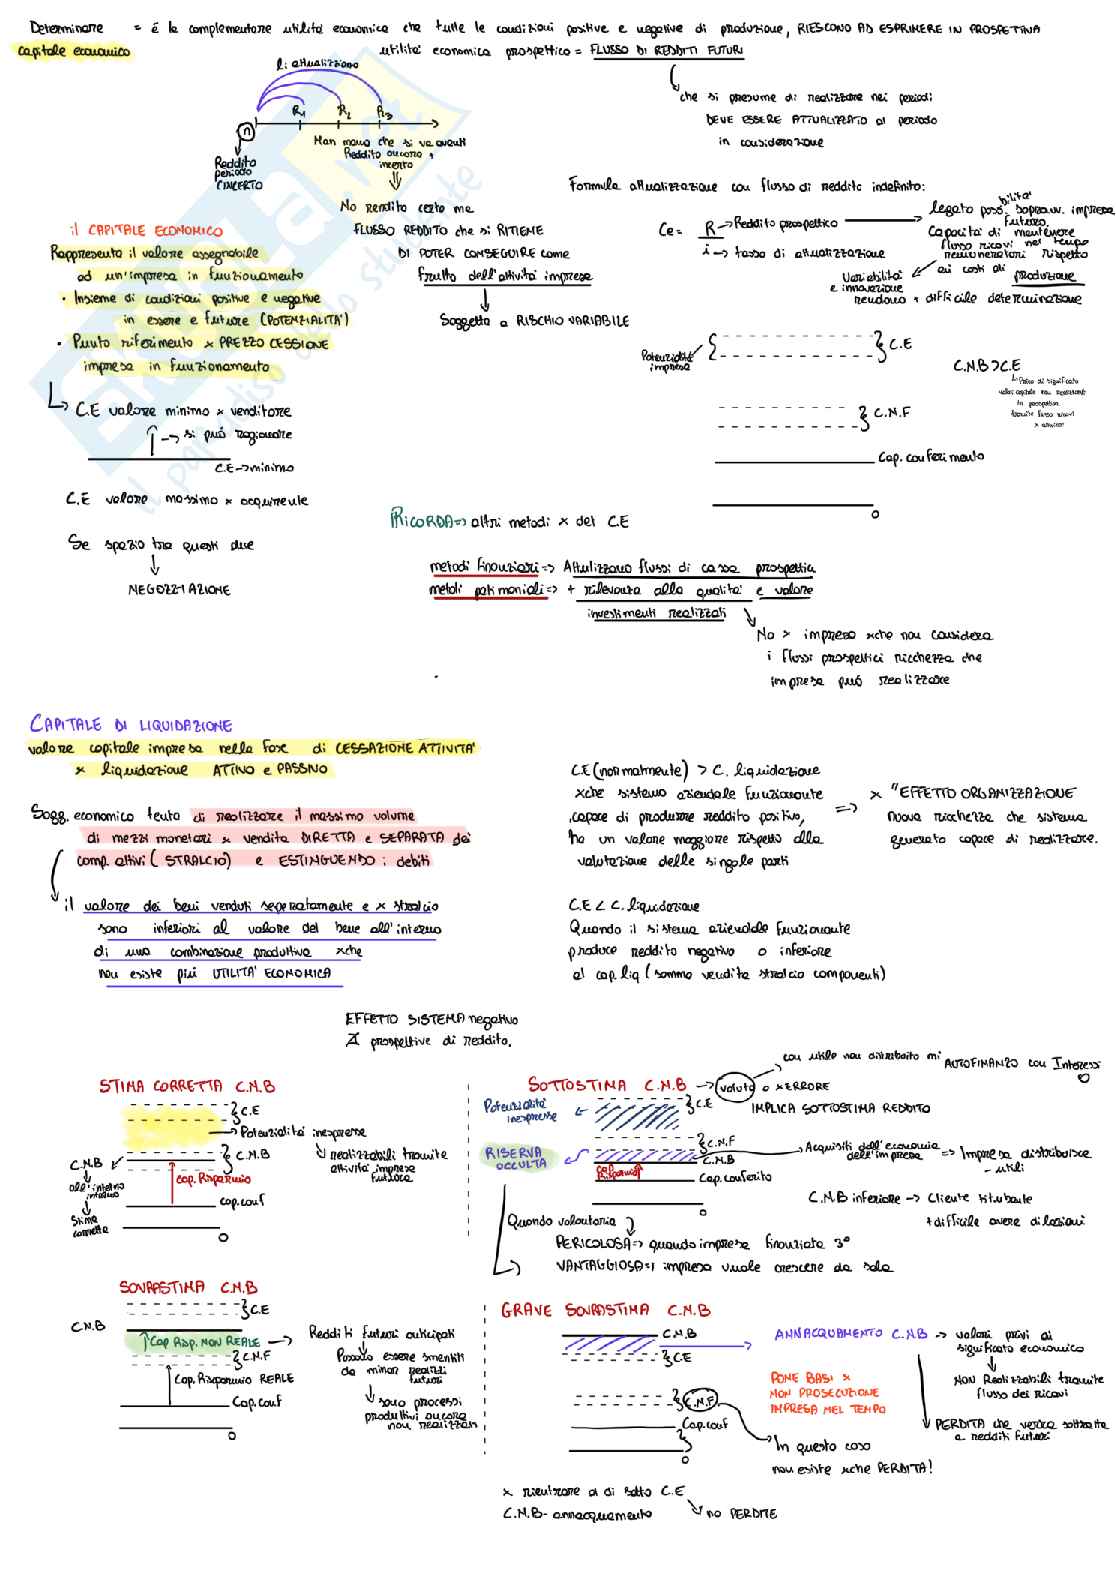 Determinare = é la complementare utilità economica che tutte le condizioni positive e negative di produzione, RIESCONO AD ESPRIMERE IN PROSPETTIVA
capitale economico utilità economica prospettico = FLUSSO DI REDDITI FUTURI
che si presume di realizzare nei periodi
DEVE ESSERE ATTUALIZZATO al periodo
in considerazione
li attualizziamo
R1 R2 R3
n
Reddito
periodo
INCERTO
Man mano che si va avanti
Reddito ancora +
incerto
No reddito certo ma
FLUSSO REDDITO che si RITIENE
DI POTER CONSEGUIRE come
frutto dell'attività impresa
Soggetto a RISCHIO VARIABILE
Formula attualizzazione con flusso di reddito indefinito:
Ce = R → Reddito prospettico
i → tasso di attualizzazione
legato possibilità sopravv. impresa
futura.
Capacità di mantenere
flusso ricavi nel tempo
remuneratori rispetto
ai costi di produzione
Variabilità
e innovazione
rendono + difficile determinazione
il CAPITALE ECONOMICO
Rappresenta il valore assegnabile
ad un'impresa in funzionamento
• Insieme di condizioni positive e negative
in essere e future (POTENZIALITA')
• Punto riferimento x PREZZO CESSIONE
impresa in funzionamento
C.E valore minimo x venditore
→ si può ragionare
C.E→minimo
C.E valore massimo x acquirente
Se spazio tra questi due
NEGOZIAZIONE
Potenzialità
impresa
C.E
C.N.F
Cap. conferimento
0
C.N.B > C.E
Privo di significato
RICORDA => altri metodi x det C.E
metodi finanziari => Attualizzano flussi di cassa prospettici
metodi patrimoniali => + rilevanza alla qualità e valore
investimenti realizzati
No > impresa xche non considera
i flussi prospettici ricchezza che
impresa può realizzare
CAPITALE DI LIQUIDAZIONE
valore capitale impresa nella fase di CESSAZIONE ATTIVITA'
x liquidazione ATTIVO e PASSIVO
Sogg. economico tenta di realizzare il massimo volume
di mezzi monetari x vendita DIRETTA e SEPARATA dei
comp. attivi ( STRALCIO) e ESTINGUENDO i debiti
il valore dei beni venduti separatamente e x stralcio
sono inferiori al valore del bene all'interno
di una combinazione produttiva xche
non esiste più UTILITA' ECONOMICA
C.E (normalmente) > C. liquidazione
xche sistema aziendale funzionante
capace di produrre reddito positivo,
ha un valore maggiore rispetto alla
valutazione delle singole parti
=> x "EFFETTO ORGANIZZAZIONE"
nuova ricchezza che sistema
generato capace di realizzare.
C.E < C. liquidazione
Quando il sistema aziendale funzionante
produce reddito negativo o inferiore
al cap. liq (somma vendita stralcio componenti)
EFFETTO SISTEMA negativo
∄ prospettive di reddito.
STIMA CORRETTA C.N.B
C.E
Potenzialità inespresse
realizzabili tramite
attività impresa
futura
C.N.B
C.N.B
all'interno
intorno
Stima
corretta
Cap. Risparmio
Cap. conf
0
SOTTOSTIMA C.N.B → voluta o x ERRORE
con utile non distribuito mi AUTOFINANZO con Interessi
0
IMPLICA SOTTOSTIMA REDDITO
Potenzialità
inespresse
C.E
C.N.F
C.N.B
RISERVA
OCCULTA
Cap
Risparmio
Cap. conferito
0
Acquisiti dall'economia
dell'impresa => Impresa distribuisce
- utili
C.N.B inferiore → Cliente titubante
+ difficile avere dilazioni
Quando volontaria
PERICOLOSA => quando impresa finanziata 3°
VANTAGGIOSA => impresa vuole crescere da sola
SOVRASTIMA C.N.B
C.E
C.N.B
Cap Risp. NON REALE
C.N.F
Cap. Risparmio REALE
Cap. conf
0
Redditi futuri anticipati
Possono essere smentiti
da minor redditi
futuri
sono processi
produttivi ancora
non realizzati
GRAVE SOVRASTIMA C.N.B
C.N.B
C.E
C.N.F
Cap. conf
0
ANNACQUAMENTO C.N.B → valori privi di
significato economico
NON Realizzabili tramite
flusso dei Ricavi
PONE BASI x
NON PROSECUZIONE
IMPRESA NEL TEMPO
PERDITA che verrà sottratta
a redditi futuri
In questo caso
non esiste xche PERDITA!
x rientrare al di sotto C.E
C.N.B - annacquamento → no PERDITE